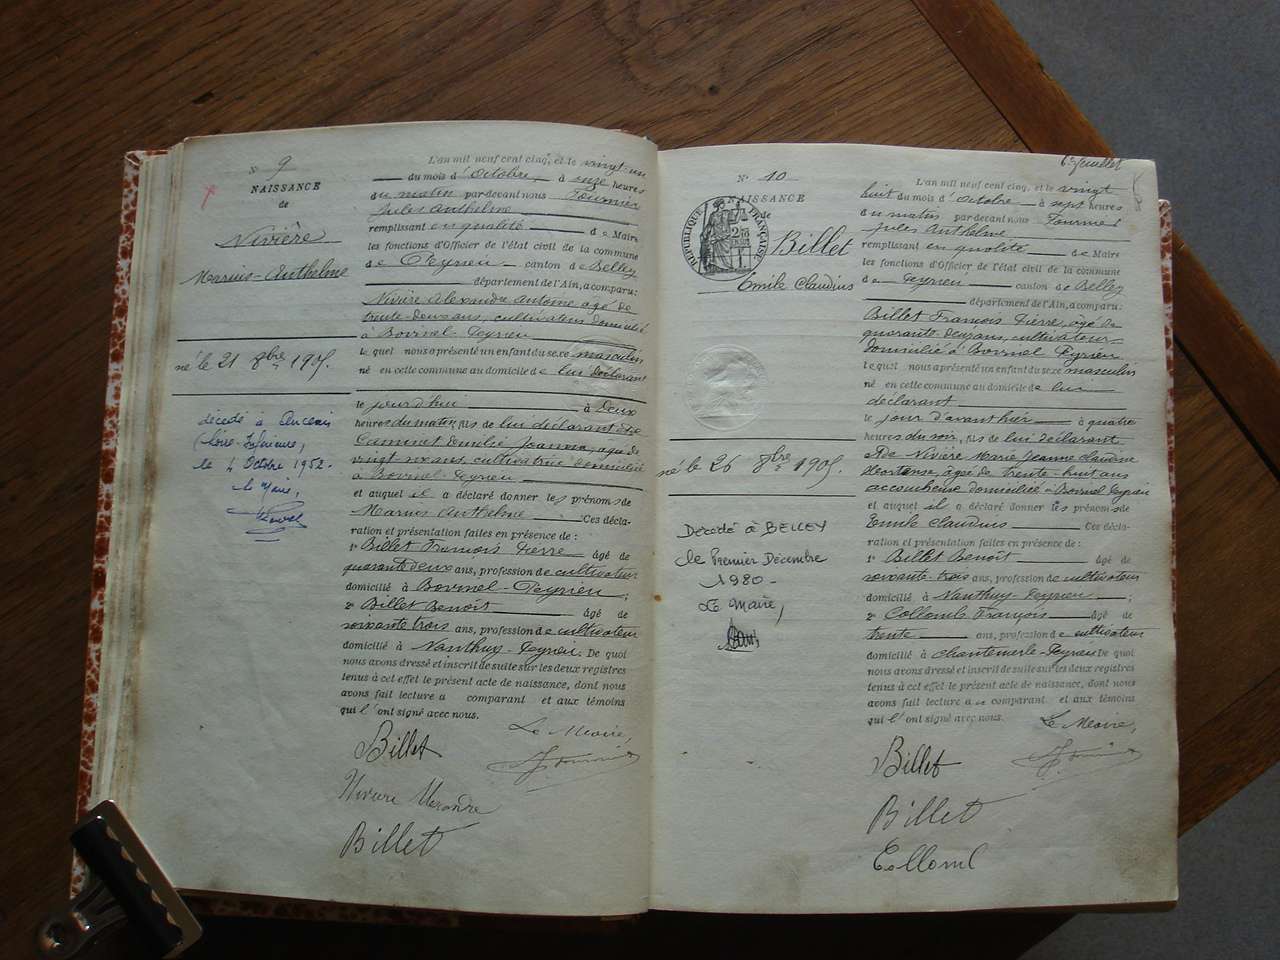 N° 9
NAISSANCE
de
Nivière
Marius-Anthelme
né le 21 8bre 1905.
décédé à Ancenis
(Loire-Inférieure,
le 4 Octobre 1952.
le Maire,
L'an mil neuf cent cinq, et le vingt-un
du mois d'Octobre, à onze heures
du matin par-devant nous Fournier
Jules Anthelme
remplissant en qualité de Maire
les fonctions d'Officier de l'état civil de la commune
de Peyrieu canton de Belley
département de l'Ain, a comparu:
Nivière Alexandre Antoine âgé de
trente-deux ans, cultivateur domicilié
à Bovinel-Peyrieu
le quel nous a présenté un enfant du sexe masculin
né en cette commune au domicile de lui déclarant
le jourd'hui à deux
heures du matin, fils de lui déclarant et de
Emélie Joanna, âgée de
vingt six ans, cultivatrice domiciliée
à Bovinel-Peyrieu
et auquel il a déclaré donner les prénoms de
Marius Anthelme Ces décla-
ration et présentation faites en présence de :
1° Billet François Pierre âgé de
quarante deux ans, profession de cultivateur
domicilié à Bovinel-Peyrieu ;
2° Billet Benoît âgé de
soixante trois ans, profession de cultivateur
domicilié à Nanthuy-Peyrieu. De quoi
nous avons dressé et inscrit de suite sur les deux registres
tenus à cet effet le présent acte de naissance, dont nous
avons fait lecture au comparant et aux témoins
qui l'ont signé avec nous.
Le Maire,
Billet
Nivière Alexandre
Billet
6 Juillet
N° 10
NAISSANCE
de
RÉPUBLIQUE FRANÇAISE
Billet
Emile Claudius
né le 26 8bre 1905.
Décédé à BELLEY
le Premier Décembre
1980-
Le Maire,
L'an mil neuf cent cinq, et le vingt
huit du mois d'Octobre à sept heures
du matin par devant nous Fournier
Jules Anthelme
remplissant en qualité de Maire
les fonctions d'Officier de l'état civil de la commune
de Peyrieu canton de Belley
département de l'Ain, a comparu:
Billet François Pierre, âgé de
quarante-deux ans, cultivateur
domicilié à Bovinel Peyrieu
Lequel nous a présenté un enfant du sexe masculin
né en cette commune au domicile de lui
déclarant
le jour d'avant hier à quatre
heures du soir, fils de lui déclarant
et de Nivière Marie Jeanne Claudine
Hortense, âgée de trente-huit ans
accoucheuse domiciliée à Bovinel Peyrieu
et auquel il a déclaré donner les prénoms de
Emile Claudius Ces décla-
ration et présentation faites en présence de :
1° Billet Benoît âgé de
soixante-trois ans, profession de cultivateur
domicilié à Nanthuy-Peyrieu ;
2° Collomb François âgé de
trente ans, profession de cultivateur
domicilié à Chantemerle-Peyrieu De quoi
nous avons dressé et inscrit de suite sur les deux registres
tenus à cet effet le présent acte de naissance, dont nous
avons fait lecture au comparant et aux témoins
qui l'ont signé avec nous.
Le Maire,
Billet
Billet
Collomb